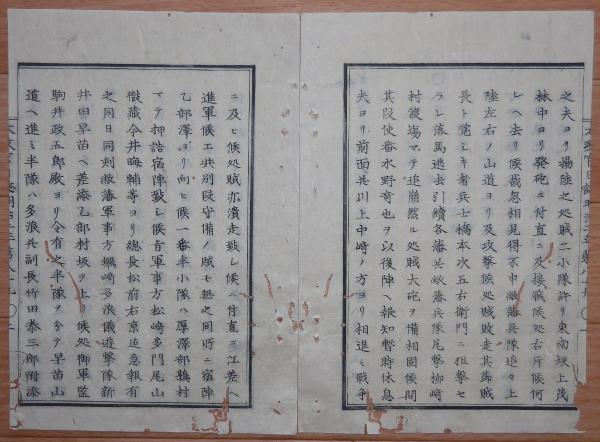 之夫ヨリ揚陸之処賊二小隊許リ東南坂上茂
林中ヨリ発砲ニ付直ニ及接戦候処右斥候何
レヘ去リ候哉忽相見得不申敝藩兵隊追々上
陸左右ノ山道ヨリ及攻撃候処賊敗走其節賊
長ト覚シキ者兵士橋本次五右衛門ニ狙撃セ
ラレ落馬逃去引續各藩共敝藩兵隊尾撃柳崎
村渡塲マテ追崩然ル処賊大砲ヲ備相固候間
其段使番水野奇也ヲ以後陣ヘ報知暫時休息
夫ヨリ前面天川上中崎ノ方ヨリ相進ミ戦争
ニ及ヒ候処賊亦潰走致シ候ニ付直ニ江差ヘ
進軍候エ共別段守備ノ賊モ無之同所ニ宿陣
乙部澤ヨリ向ヒ候一番半小隊ハ厚澤部鶉村
マテ押詰宿陣致シ候音軍事方松崎多門尾山
徴蔵今井晦輔等ヨリ總長松前右京迄急報有
之同日同刻敝藩軍事方蠣崎多浪儀遊撃隊新
井田早苗ヘ差添乙部村坂ヲ上リ候処御軍監
駒井政五郎殿ヨリ令有之半隊ヲ分テ早苗山
道ヘ進ミ半隊ハ多浪共副長竹田泰三郎附添